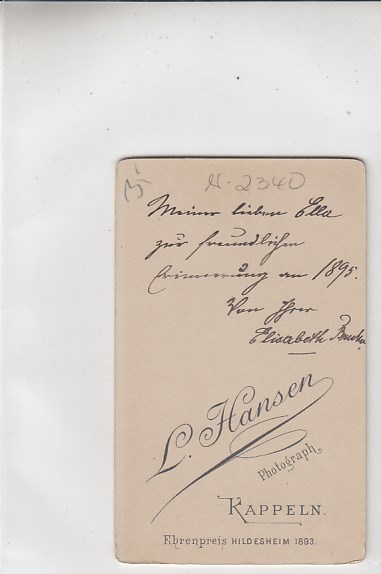 N-2340
Meiner lieben Ella
zur freundlichen
Erinnerung an 1895.
Von Ihrer
Elisabeth
L. Hansen
Photograph.
KAPPELN.
Ehrenpreis HILDESHEIM 1893.